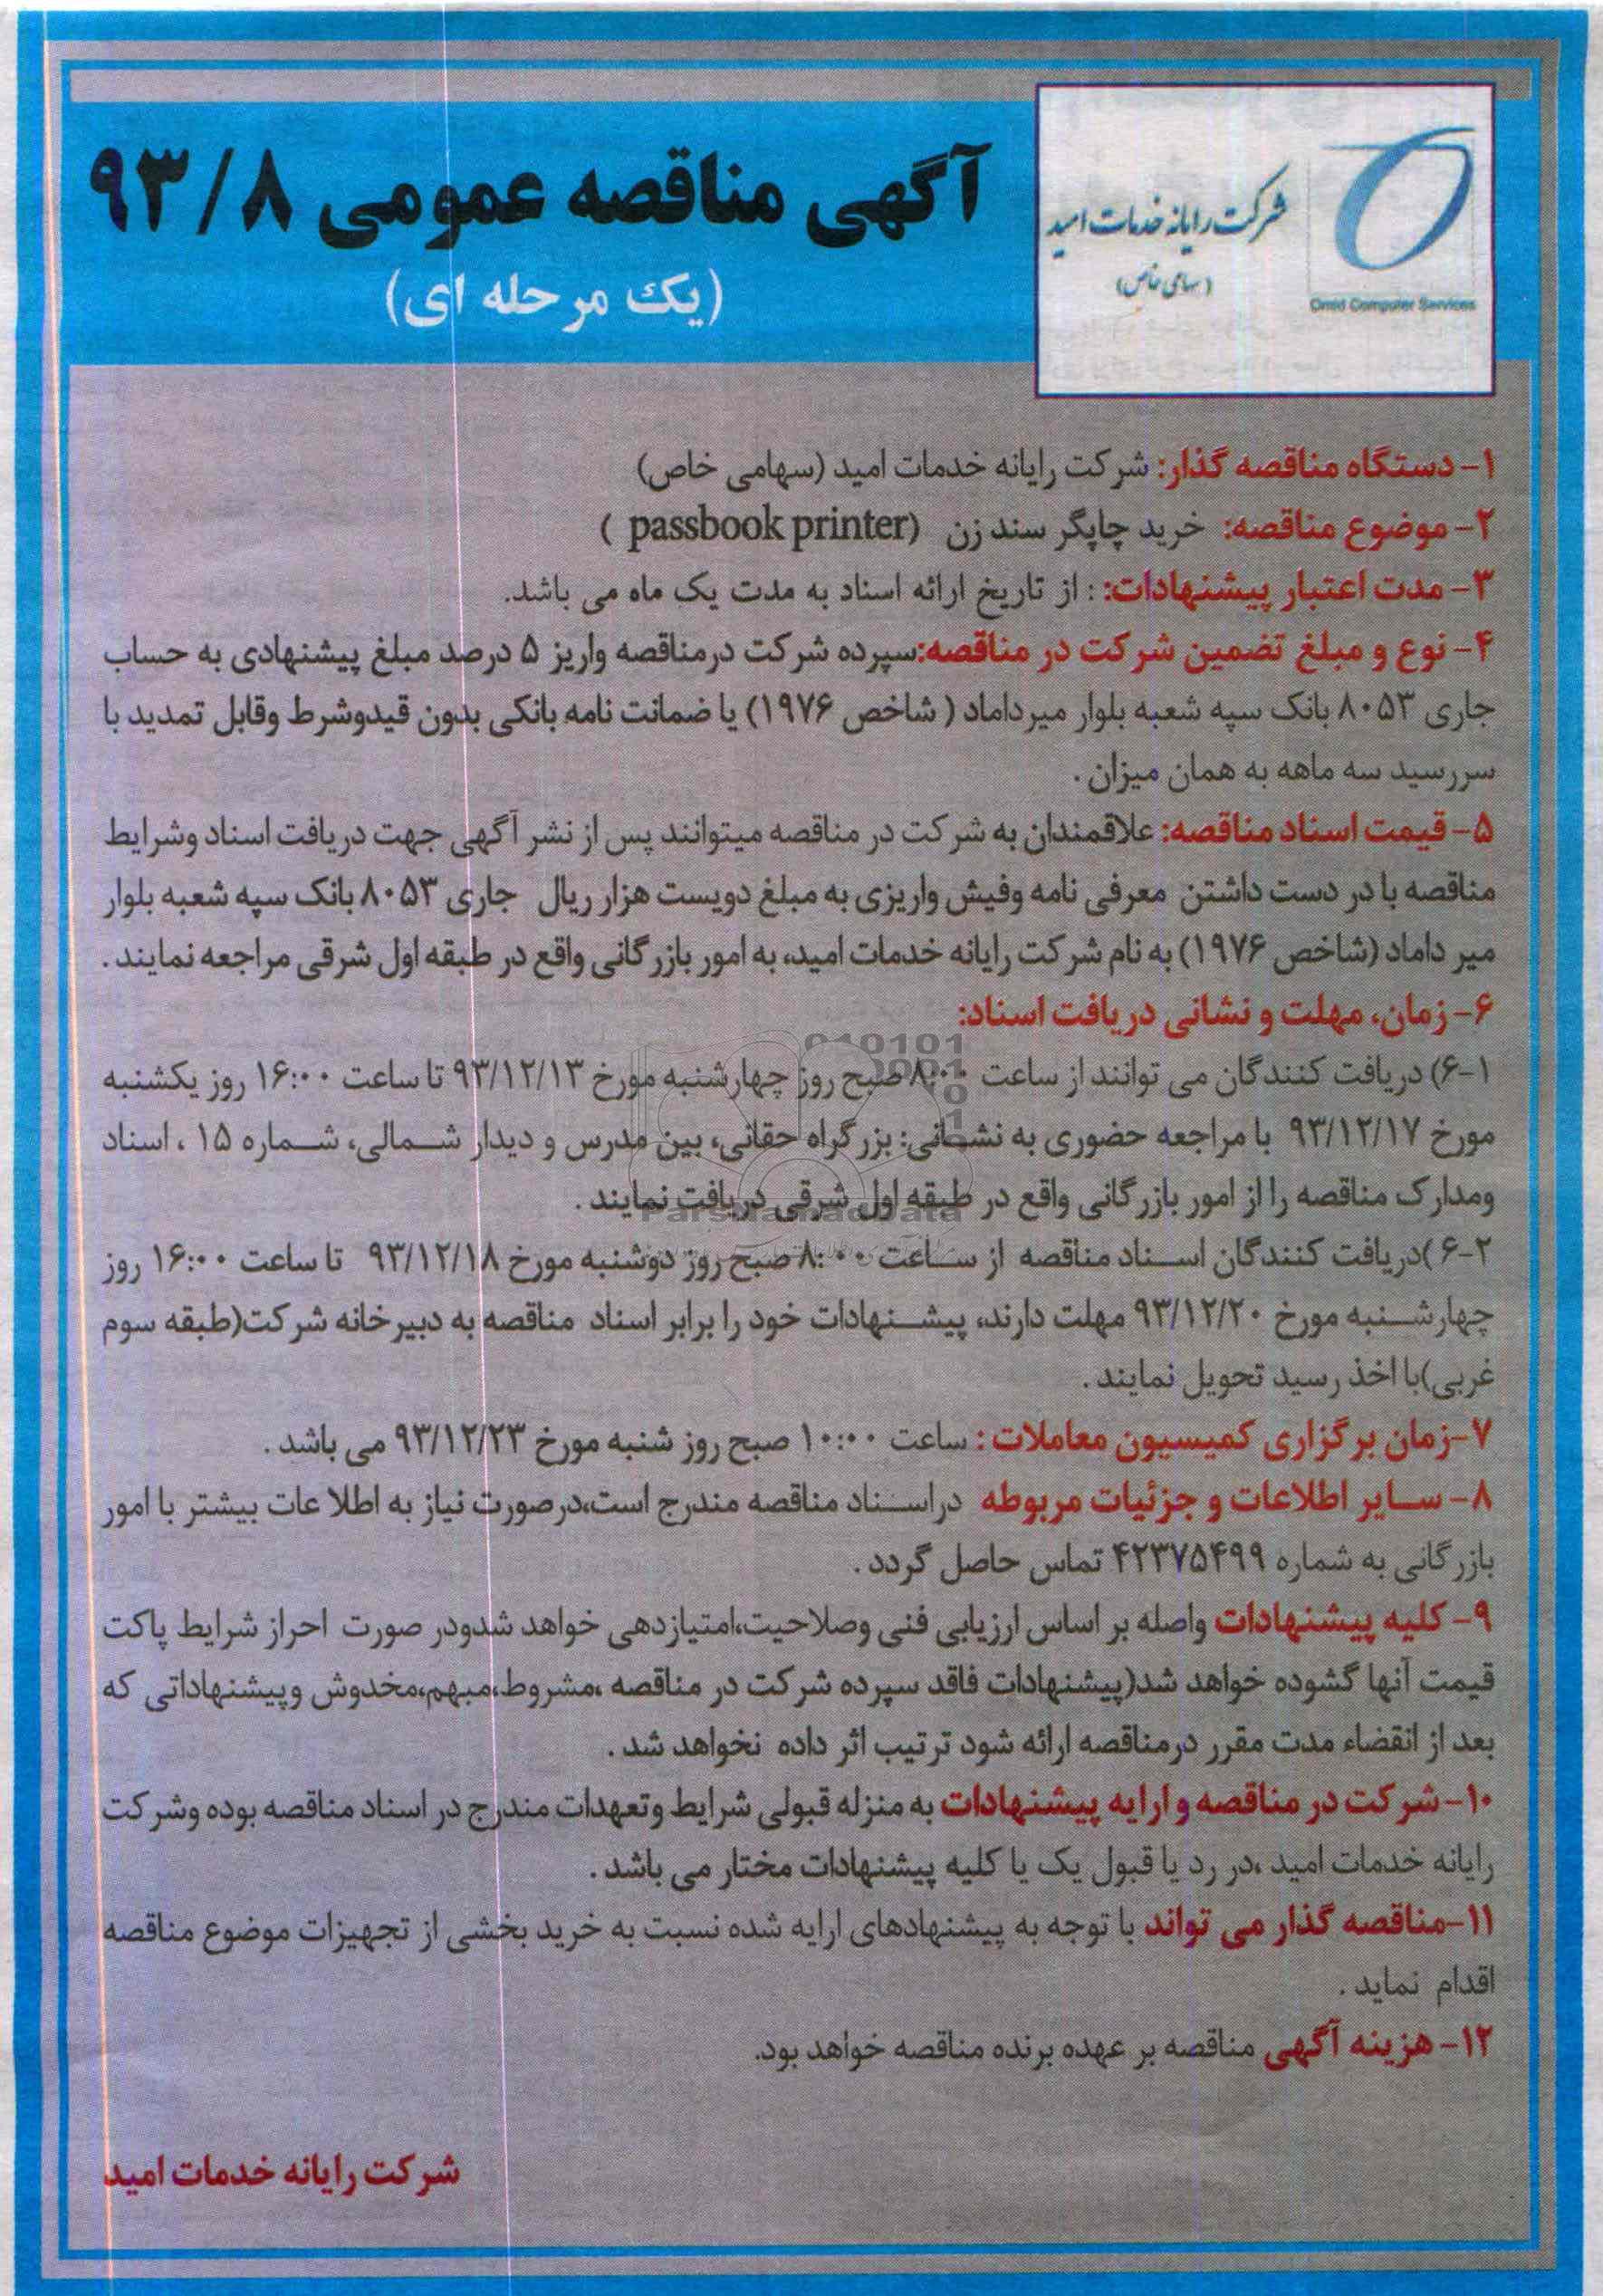 آگهی مناقصه عمومی ۹۳/۸
(یک مرحله ای)
شرکت رایانه خدمات امید
(سهامی خاص)
Omid Computer Services
۱- دستگاه مناقصه گذار: شرکت رایانه خدمات امید (سهامی خاص)
۲- موضوع مناقصه: خرید چاپگر سند زن (passbook printer )
۳- مدت اعتبار پیشنهادات: : از تاریخ ارائه اسناد به مدت یک ماه می باشد.
۴- نوع و مبلغ تضمین شرکت در مناقصه:سپرده شرکت درمناقصه واریز ۵ درصد مبلغ پیشنهادی به حساب
جاری ۸۰۵۳ بانک سپه شعبه بلوار میرداماد ( شاخص ۱۹۷۶) یا ضمانت نامه بانکی بدون قیدوشرط وقابل تمدید با
سررسید سه ماهه به همان میزان .
۵- قیمت اسناد مناقصه: علاقمندان به شرکت در مناقصه میتوانند پس از نشر آگهی جهت دریافت اسناد وشرایط
مناقصه با در دست داشتن معرفی نامه وفیش واریزی به مبلغ دویست هزار ریال جاری ۸۰۵۳ بانک سپه شعبه بلوار
میر داماد (شاخص ۱۹۷۶) به نام شرکت رایانه خدمات امید، به امور بازرگانی واقع در طبقه اول شرقی مراجعه نمایند .
۶- زمان، مهلت و نشانی دریافت اسناد:
۶-۱) دریافت کنندگان می توانند از ساعت ۸:۰۰ صبح روز چهارشنبه مورخ ۹۳/۱۲/۱۳ تا ساعت ۱۶:۰۰ روز یکشنبه
مورخ ۹۳/۱۲/۱۷ با مراجعه حضوری به نشانی: بزرگراه حقانی، بین مدرس و دیدار شمالی، شماره ۱۵ ، اسناد
ومدارک مناقصه را از امور بازرگانی واقع در طبقه اول شرقی دریافت نمایند .
۶-۲ )دریافت کنندگان اسناد مناقصه از ساعت ۸:۰۰ صبح روز دوشنبه مورخ ۹۳/۱۲/۱۸ تا ساعت ۱۶:۰۰ روز
چهارشنبه مورخ ۹۳/۱۲/۲۰ مهلت دارند، پیشنهادات خود را برابر اسناد مناقصه به دبیرخانه شرکت(طبقه سوم
غربی)با اخذ رسید تحویل نمایند .
۷-زمان برگزاری کمیسیون معاملات : ساعت ۱۰:۰۰ صبح روز شنبه مورخ ۹۳/۱۲/۲۳ می باشد .
۸- سایر اطلاعات و جزئیات مربوطه دراسناد مناقصه مندرج است،درصورت نیاز به اطلا عات بیشتر با امور
بازرگانی به شماره ۴۲۳۷۵۴۹۹ تماس حاصل گردد .
۹- کلیه پیشنهادات واصله بر اساس ارزیابی فنی وصلاحیت،امتیازدهی خواهد شدودر صورت احراز شرایط پاکت
قیمت آنها گشوده خواهد شد(پیشنهادات فاقد سپرده شرکت در مناقصه ،مشروط،مبهم،مخدوش وپیشنهاداتی که
بعد از انقضاء مدت مقرر درمناقصه ارائه شود ترتیب اثر داده نخواهد شد .
۱۰- شرکت در مناقصه و ارایه پیشنهادات به منزله قبولی شرایط وتعهدات مندرج در اسناد مناقصه بوده وشرکت
رایانه خدمات امید ،در رد یا قبول یک یا کلیه پیشنهادات مختار می باشد .
۱۱-مناقصه گذار می تواند با توجه به پیشنهادهای ارایه شده نسبت به خرید بخشی از تجهیزات موضوع مناقصه
اقدام نماید .
۱۲- هزینه آگهی مناقصه بر عهده برنده مناقصه خواهد بود.
شرکت رایانه خدمات امید